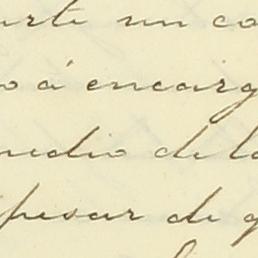 urte un co
o á encarg
medio de la
pesar de q